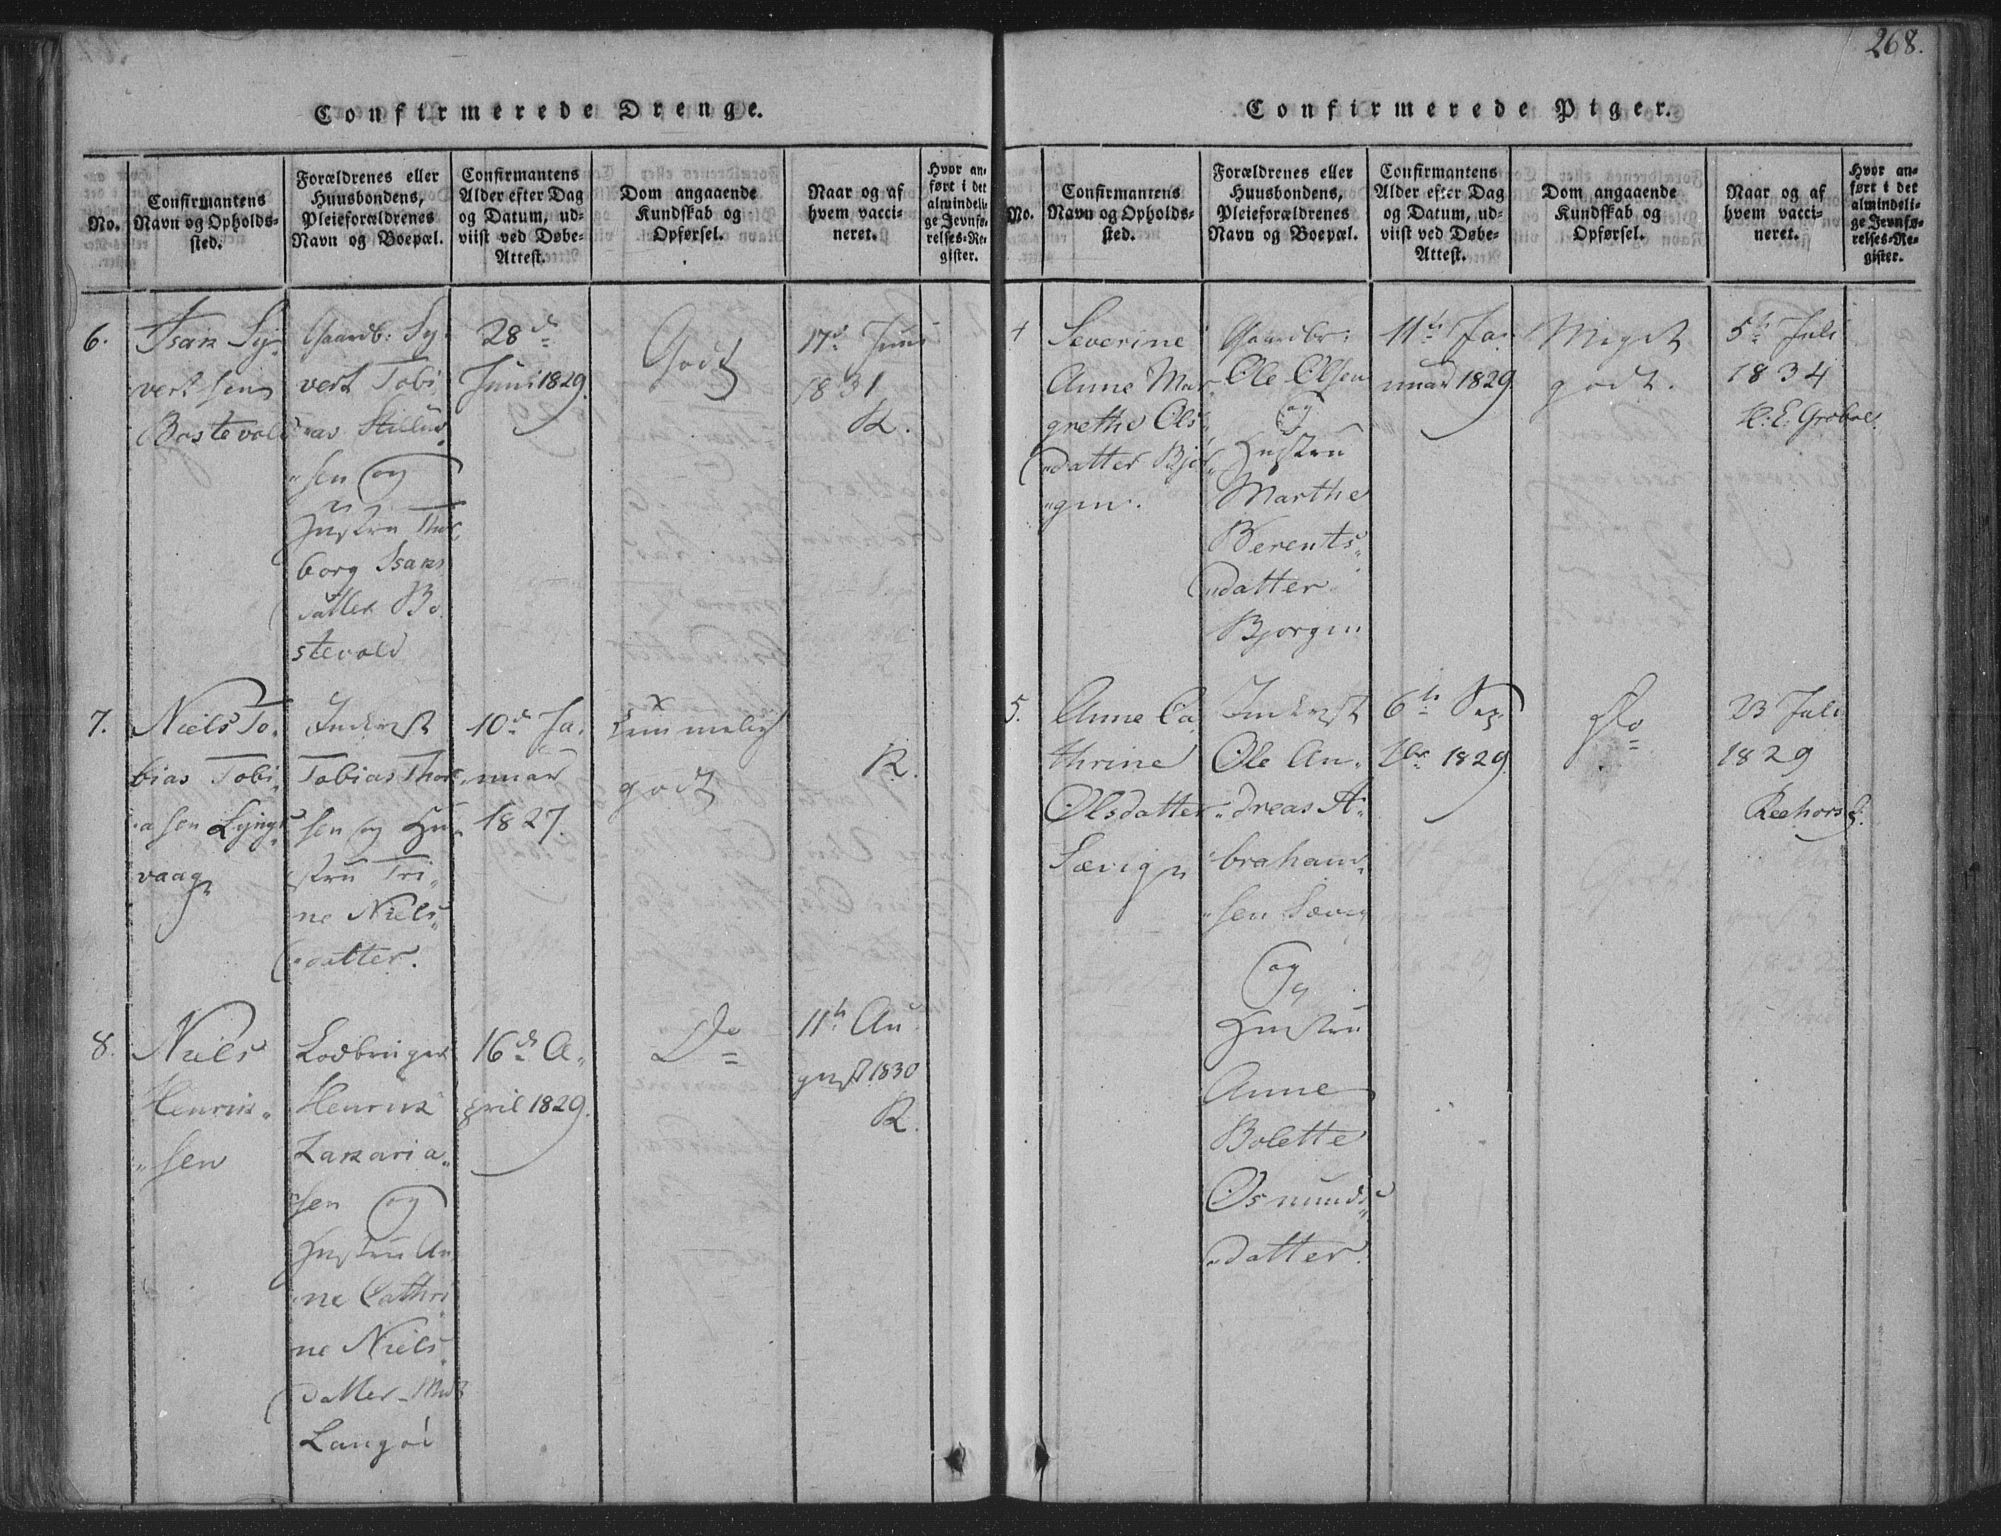 268.
Confirmerede Drenge.
No.
Confirmantens
Navn og Opholds-
sted.
Forældrenes eller
Huusbondens,
Pleieforældrenes
Navn og Boepæl.
Confirmantens
Alder efter Dag
og Datum, ud-
viist ved Døbe-
Attest.
Dom angaaende
Kundskab og
Opførsel.
Naar og af
hvem vacci-
neret.
Hvor an-
ført i det
almindeli-
ge Jevnfø-
relses-Re-
gister.
6.
Isak Sy-
vertsen
Bostevold
Gaardb: Sy-
vert Tobi
as
sen og
Hustru Thor
borg Isaks
datter Bo
stevold
28de
Juni 1829.
Godt
17d Juni
1831
R.
7.
Niels To-
bias Tobi-
asen Lyngs
vaag
Inderst
Tobias Thor
sen og Hu-
stru Tri-
ne Niels
datter.
10de Ja-
nuar
1827.
temmelig
godt
R.
8.
Niels
Henrik-
sen
Lodbruger
Henrik
Zakaria-
sen og
Hustru An
ne Cathri
ne Niels
datter
Langøi
16de A-
pril 1829.
Do
11te Au
gust 1830
R.
Confirmerede Piger.
No.
Confirmantens
Navn og Opholds-
sted.
Forældrenes eller
Huusbondens,
Pleieforældrenes
Navn og Boepæl.
Confirmantens
Alder efter Dag
og Datum, ud-
viist ved Døbe-
Attest.
Dom angaaende
Kundskab og
Opførsel.
Naar og af
hvem vacci-
neret.
Hvor an-
ført i det
almindeli-
ge Jevnfø-
relses-Re-
gister.
4
Severine
Anne Mar
grethe Ols
datter Bjør
gen.
Gaardbr:
Ole Olsen
og
Hustru
Marthe
Berents
datter
Bjørgen
11te Ja-
nuar 1829.
Meget
godt.
5te Juli
1834
5.
Anne Ca
thrine
Olsdatter
Sævig
Inderst
Ole An-
dreas A-
braham-
sen Sævig
og
Hustru
Anne
Bolette
Osmunds
datter.
6te Sep
tbr 1829.
Do
23 Juli
1829
Reehorst.